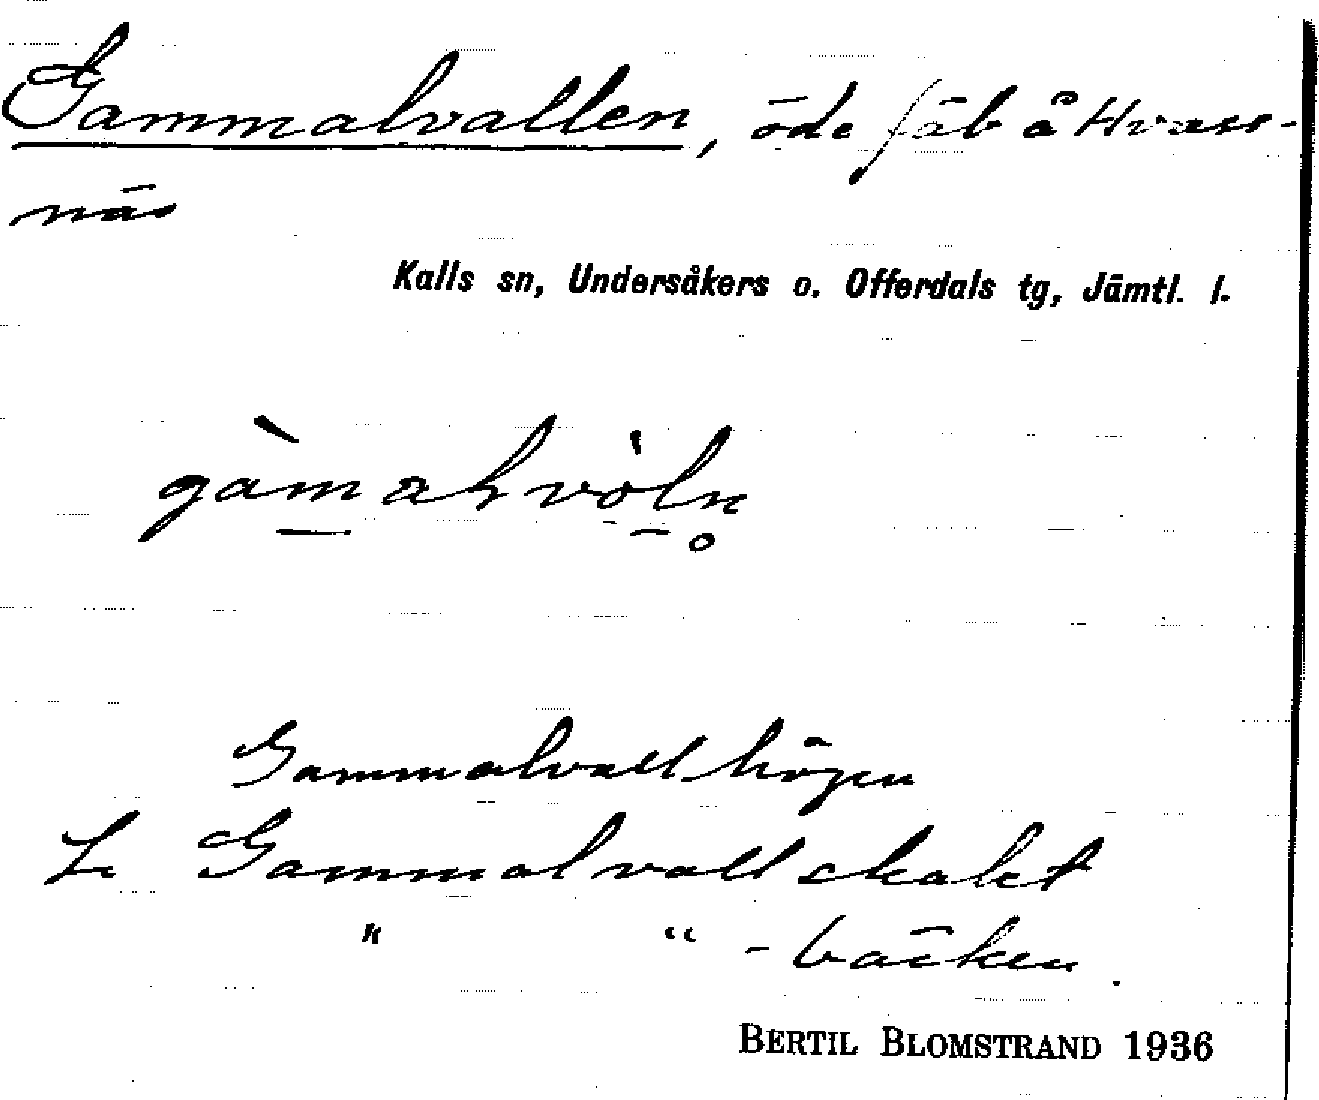 Gammalvallen, öde fäb å Hvass-
näs
Kalls sn, Undersåkers o. Offerdals tg, Jämtl. l.
gàmalvöln̥
Gammalvallhögen
L. Gammalvallskalet
" " -bäcken.
BERTIL BLOMSTRAND 1936